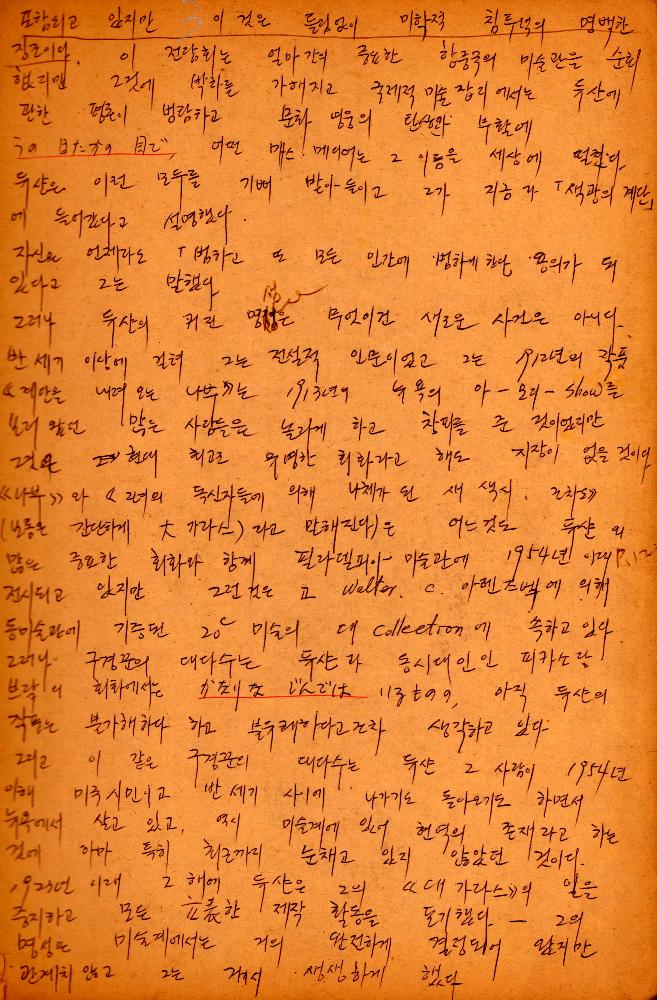 포함되고 있지만 이것은 틀림없이 미학적 침투력의 명백한
징조이다. 이 전람회는 얼마간의 중요한 합중국의 미술관을 순회
했지만 그것에 박차를 가해지고 국제적 미술잡지에서는 듀샨에
관한 평론이 범람하고 문화 영웅의 탄생과 부활에
어떤 매스·메이어는 그 이름을 세상에 떨쳤다.
듀샨은 이런 모두를 기뻐 받아들이고 그가 지금 라 「색광의 계단」
에 들어갔다고 설명했다.
자신은 언제라도 「범하고 또 모든 인간에 범하게 한다 용의가 되
있다고 그는 말했다
그러나 듀샨의 커진 명성은 무엇이건 새로운 사건은 아니다.
반세기 이상에 걸쳐 그는 전설적 인물이었고 그는 1912년의 작품
《계단을 내려오는 나부》는 1913년의 뉴욕의 아-모리-show를
보러 왔던 많은 사람들은 놀라게 하고 창피를 준 것이었지만
그것은 현대 최고로 유명한 회화라고 해도 지장이 없을 것이다
《나부》와 《그녀의 독신자들에 의해 나체가 된 새 색시, 조차도》
(보통은 간단하게 大 가라스)라고 말해진다)은 어느것도 듀샨의
많은 중요한 회화와 함께 필라델피아 미술관에 1954년 이래
전시되고 있지만 그런 것은 Walter. C. 아렌즈벡에 의해
동미술관에 기증된 20C 미술의 대 collection에 속하고 있다
그러나 구경꾼의 대다수는 듀샨과 동시대인인 피카소랑
브락의 회화에서는 아직 듀샨의
작품은 불가해하다 하고 불유쾌하다고조차 생각하고 있다
그리고 이 같은 구경꾼의 대다수는 듀샨 그 사람이 1954년
이래 미국 시민이고 반세기 사이에 나가기도 돌아오기도 하면서
뉴욕에서 살고 있고, 역시 미술계에 있어 현역의 존재라고 하는
것에 아마 특히 최근까지 눈채고 있지 않았던 것이다.
1923년 이래 그 해에 듀샨은 그의 《대 가라스》의 일을
중지하고 모든 한 제작 활동을 포기했다 — 그의
명성은 미술계에서는 거의 완전하게 결정되어 있지만
관계치 않고 그는 겨서 생생하게 했다